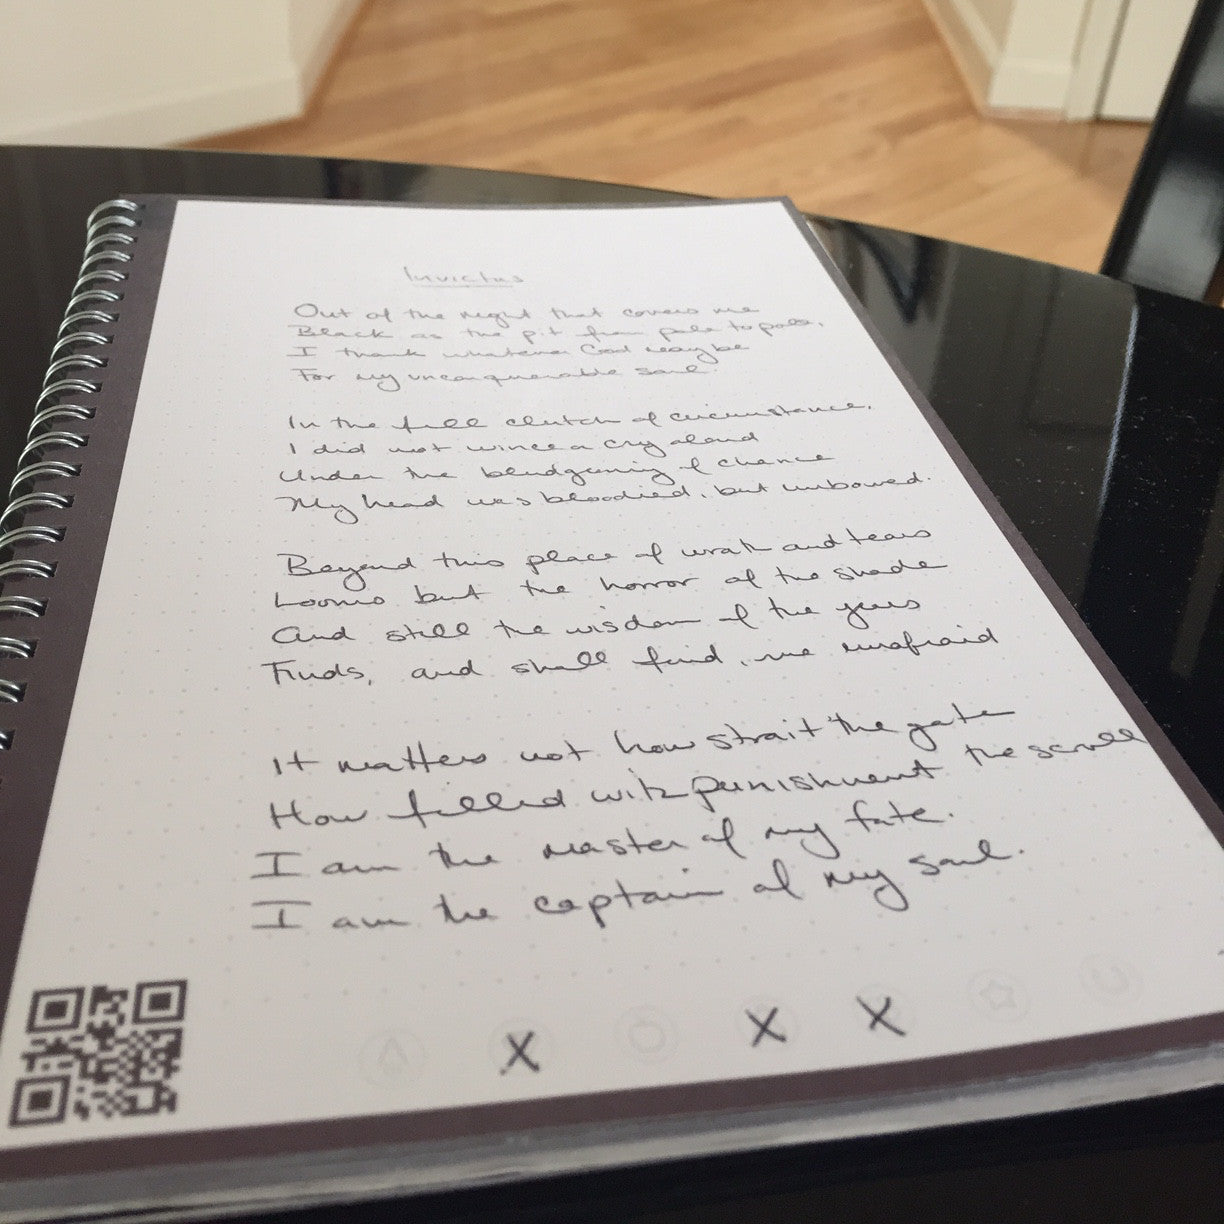 Invictus
Out of the night that covers me
Black as the pit from pole to pole,
I thank whatever God may be
For my unconquerable soul.
In the fell clutch of circumstance,
I did not wince a cry aloud
Under the bludgeoning of chance
My head was bloodied, but unbowed.
Beyond this place of wrath and tears
Looms but the horror of the shade
And still the wisdom of the years
Finds, and shall find, me unafraid
It matters not how strait the gate
How filled with punishment the scroll
I am the master of my fate.
I am the captain of my soul.
X X X